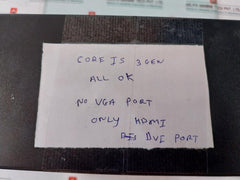 CORE I5 3GEN
ALL OK
NO VGA PORT
ONLY HDMI
DVI PORT